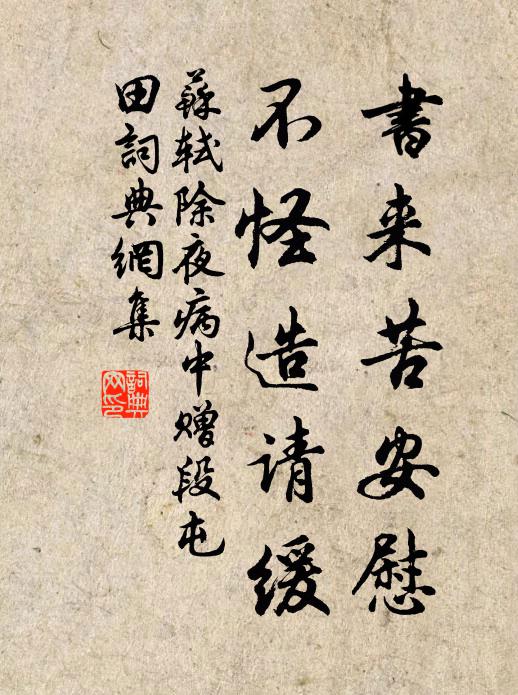 書来苦安慰
不怪造请缓
蘇軾除夜病中赠段屯
田詞典網集
詞典
网印